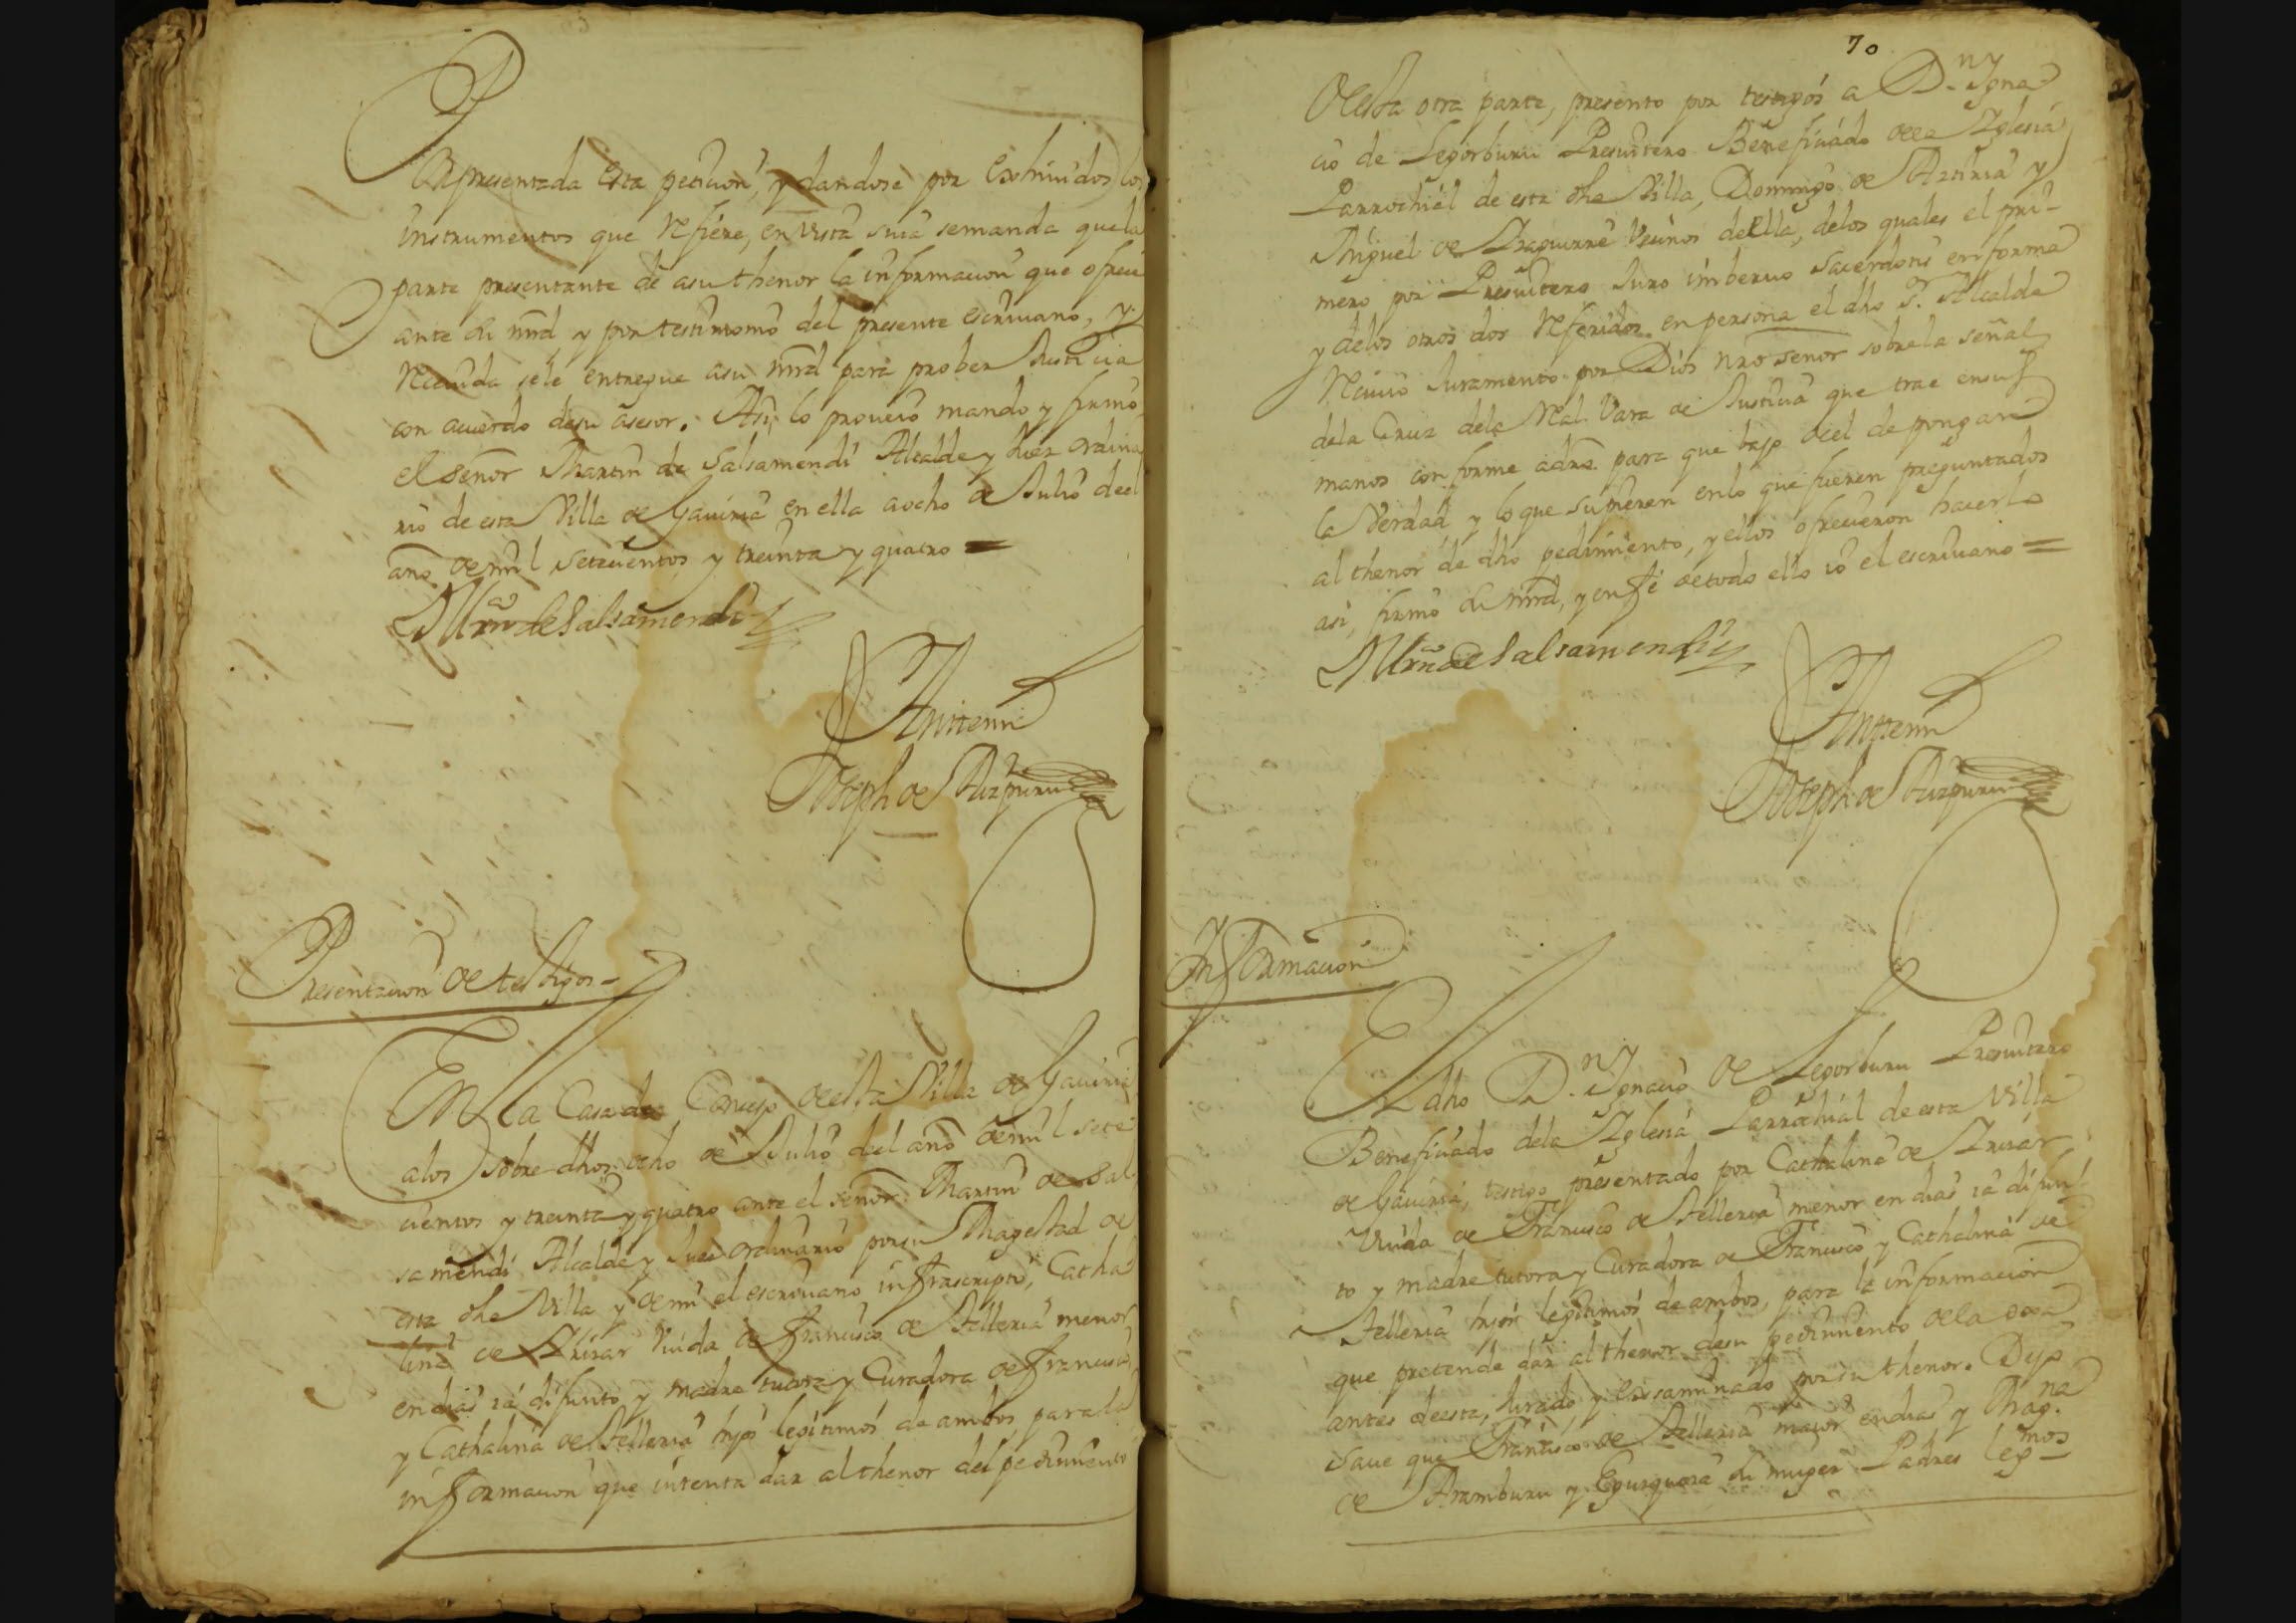 Por presentada esta peticion, y dandose por exshiuidos los
instrumentos que refiere, en vista suia se manda que la
parte presentante dé a su thenor la informacion que ofrece
ante su mrd y por testimonio del presente escriuano, y
reciuida se le entregue a su mrd para prober Justicia
con acuerdo de su asesor. Asi lo proueió mando y firmo
el señor Martin de Salsamendi Alcalde y Juez ordina
rio de esta Villa de Gauiria en ella a ocho de Julio de el
año de mil setecientos y treinta y quatro =
Mrn de Salsamendi
Antemi
Joseph de Aizpuru
Presentacion de testigos =
En la Casa de Concejo de esta Villa de Gauiria
a los sobre dhos ocho de Julio del año de mil sete
cientos y treinta y quatro ante el señor Martin de Sal
samendi Alcalde y Juez ordinario por su Magestad de
esta dha Villa y de mi el escriuano infrascripto, Catha
lina de Irizar Viuda de Francisco de Telleria menor
en dias iá difunto y madre tutora y Curadora de Francisco
y Cathalina de Telleria hijos legitimos de ambos, para la
informacion que intenta dar al thenor del pedimiento
70
de esta otra parte, presento por testigos a Dn Igna
cio de Legorburu Presuitero Beneficiado de la Iglesia
Parrochial de esta dha Villa, Domingo de Aztiria y
Miguel de Iraguirre Vecinos de ella, de los quales el pri-
mero por Presuitero Juro in beruo sacerdotis en forma
y de los otros dos referidos en persona el dho Sr. Alcalde
reciuio Juramento por Dios nro señor sobre la señal
de la Cruz de la Real Vara de Justicia que trae en sus
manos conforme a dro para que bajo de el depongan
la Verdad y lo que supieren en lo que fueren preguntados
al thenor de dho pedimiento, y ellos ofrecieron hacerlo
asi, firmó su mrd, y en fé de todo ello io el escriuano =
Mrn de Salsamendi
Antemi
Joseph de Aizpuru
Informacion
El dho Dn Ignacio de Legorburu Presuitero
Beneficiado de la Iglesia Parrochial de esta Villa
de Gauiria, testigo presentado por Cathalina de Irizar,
Viuda de Francisco de Telleria menor en dias iá difun
to y madre tutora y Curadora de Francisco y Cathalina de
Telleria hijos legitimos de ambos, para la informacion
que pretende dar al thenor de su pedimiento de la oxa
antes de esta, Jurado y exsaminado por su thenor. Dijo
saue que Francisco de Telleria maior en dias y Mag.na
de Aramburu y Egurguera su muger Padres legmos